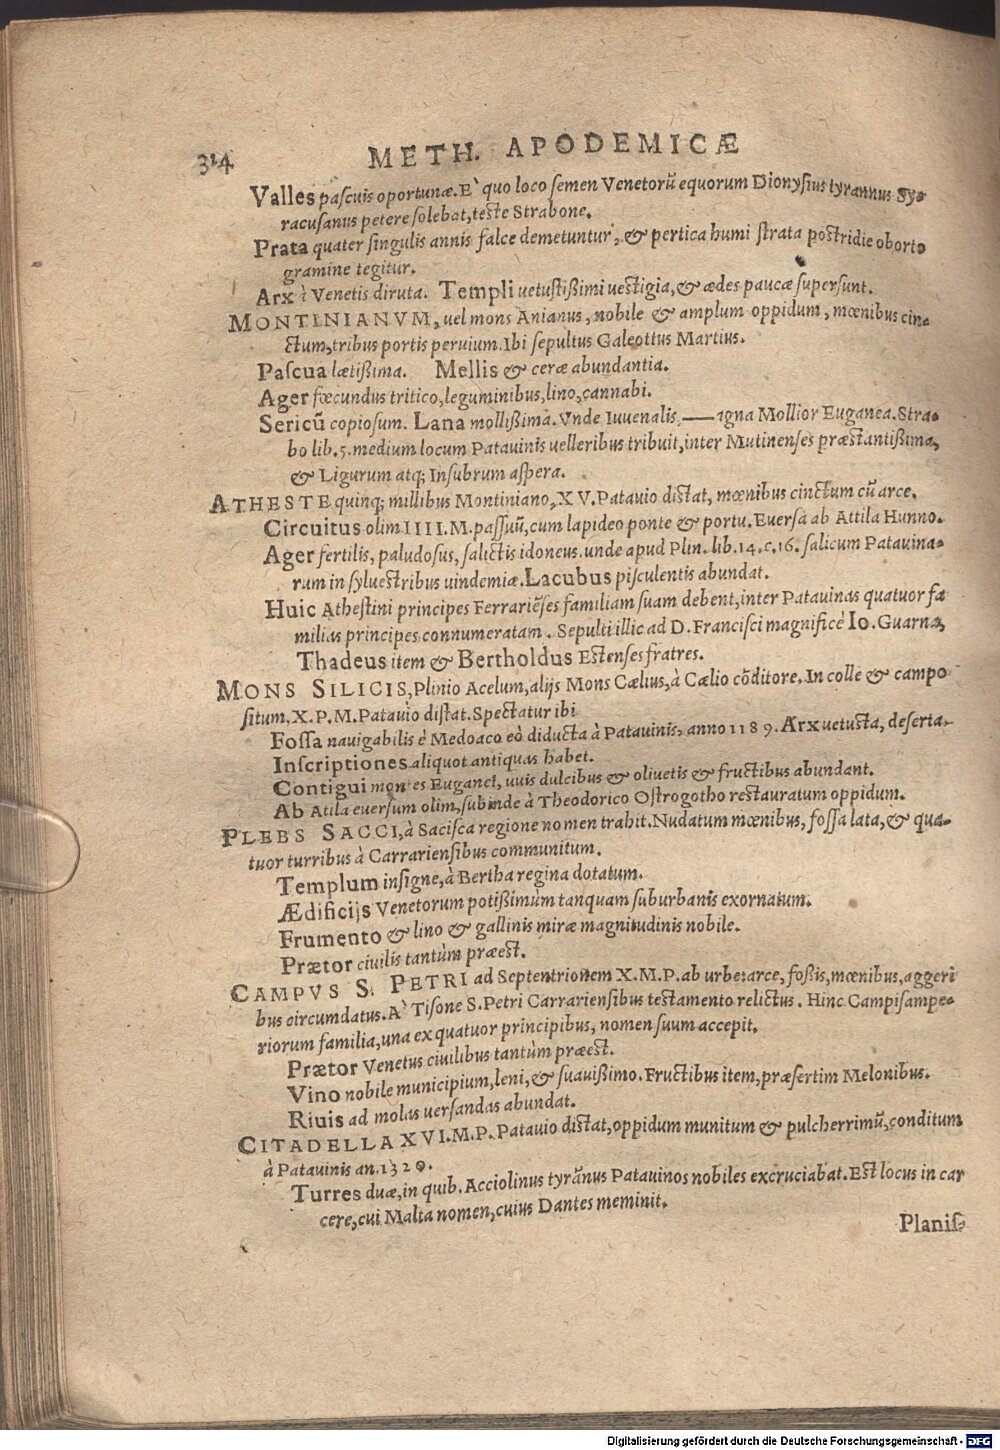 314 METH. APODEMICÆ
Valles paſcuis oportunæ. E' quo loco ſemen Venetorũ equorum Dionyſius tyrannus Sy-
racuſanus petere ſolebat, teſte Strabone.
Prata quater ſingulis annis falce demetuntur, & pertica humi ſtrata poſtridie oborto
gramine tegitur.
Arx à Venetis diruta. Templi uetuſtißimi ueſtigia, & ædes paucæ ſuperſunt.
MONTINIANVM, uel mons Anianus, nobile & amplum oppidum, mœnibus cin-
ctum, tribus portis peruium. Ibi ſepultus Galeottus Martius.
Paſcua lætißima. Mellis & ceræ abundantia.
Ager fœcundus tritico, leguminibus, lino, cannabi.
Sericũ copioſum. Lana mollißima. Vnde Iuuenalis, —— agna Mollior Euganea. Stra-
bo lib. 5. medium locum Patauinis uelleribus tribuit, inter Mutinenſes præſtantißima,
& Ligurum atq; Inſubrum aſpera.
ATHESTE quinq; millibus Montiniano, XV. Patauio diſtat, mœnibus cinctum cũ arce.
Circuitus olim IIII. M. paſſuũ, cum lapideo ponte & portu. Euerſa ab Attila Hunno.
Ager fertilis, paludoſus, ſalictis idoneus. unde apud Plin. lib. 14. c. 16. ſalicum Patauina-
rum in ſylueſtribus uindemiæ. Lacubus piſculentis abundat.
Huic Atheſtini principes Ferrariẽſes familiam ſuam debent, inter Patauinas quatuor fa
milias principes connumeratam. Sepulti illic ad D. Franciſci magnificè Io. Guarna,
Thadeus item & Bertholdus Eſtenſes fratres.
MONS SILICIS, Plinio Acelum, alijs Mons Cælius, à Cælio cõditore. In colle & campo
ſitum, X. P. M. Patauio diſtat. Spectatur ibi
Foſſa nauigabilis è Medoaco eò diducta à Patauinis, anno 1189. Arx uetuſta, deſerta.
Inſcriptiones aliquot antiquas habet.
Contigui montes Euganei, uuis dulcibus & oliuetis & fructibus abundant.
Ab Atila euerſum olim, ſubinde à Theodorico Oſtrogotho reſtauratum oppidum.
PLEBS SACCI, à Saciſca regione nomen trahit. Nudatum mœnibus, foſſa lata, & qua-
tuor turribus à Carrarienſibus communitum.
Templum inſigne, à Bertha regina dotatum.
Ædificijs Venetorum potißimùm tanquam ſuburbanis exornatum.
Frumento & lino & gallinis miræ magnitudinis nobile.
Prætor ciuilis tantùm præeſt.
CAMPVS S. PETRI ad Septentrionem X. M. P. ab urbe: arce, foßis, mœnibus, aggeri
bus circumdatus. A' Tiſone S. Petri Carrarienſibus teſtamento relictus. Hinc Campiſampe-
riorum familia, una ex quatuor principibus, nomen ſuum accepit.
Prætor Venetus ciuilibus tantùm præeſt.
Vino nobile municipium, leni, & ſuauißimo. Fructibus item, præſertim Melonibus.
Riuis ad molas uerſandas abundat.
CITADELLA XVI. M. P. Patauio diſtat, oppidum munitum & pulcherrimũ, conditum
à Patauinis an. 1320.
Turres duæ, in quib. Acciolinus tyrãnus Patauinos nobiles excruciabat. Eſt locus in car
cere, cui Malta nomen, cuius Dantes meminit.
Planiſ-
Digitalisierung gefördert durch die Deutsche Forschungsgemeinschaft - DFG